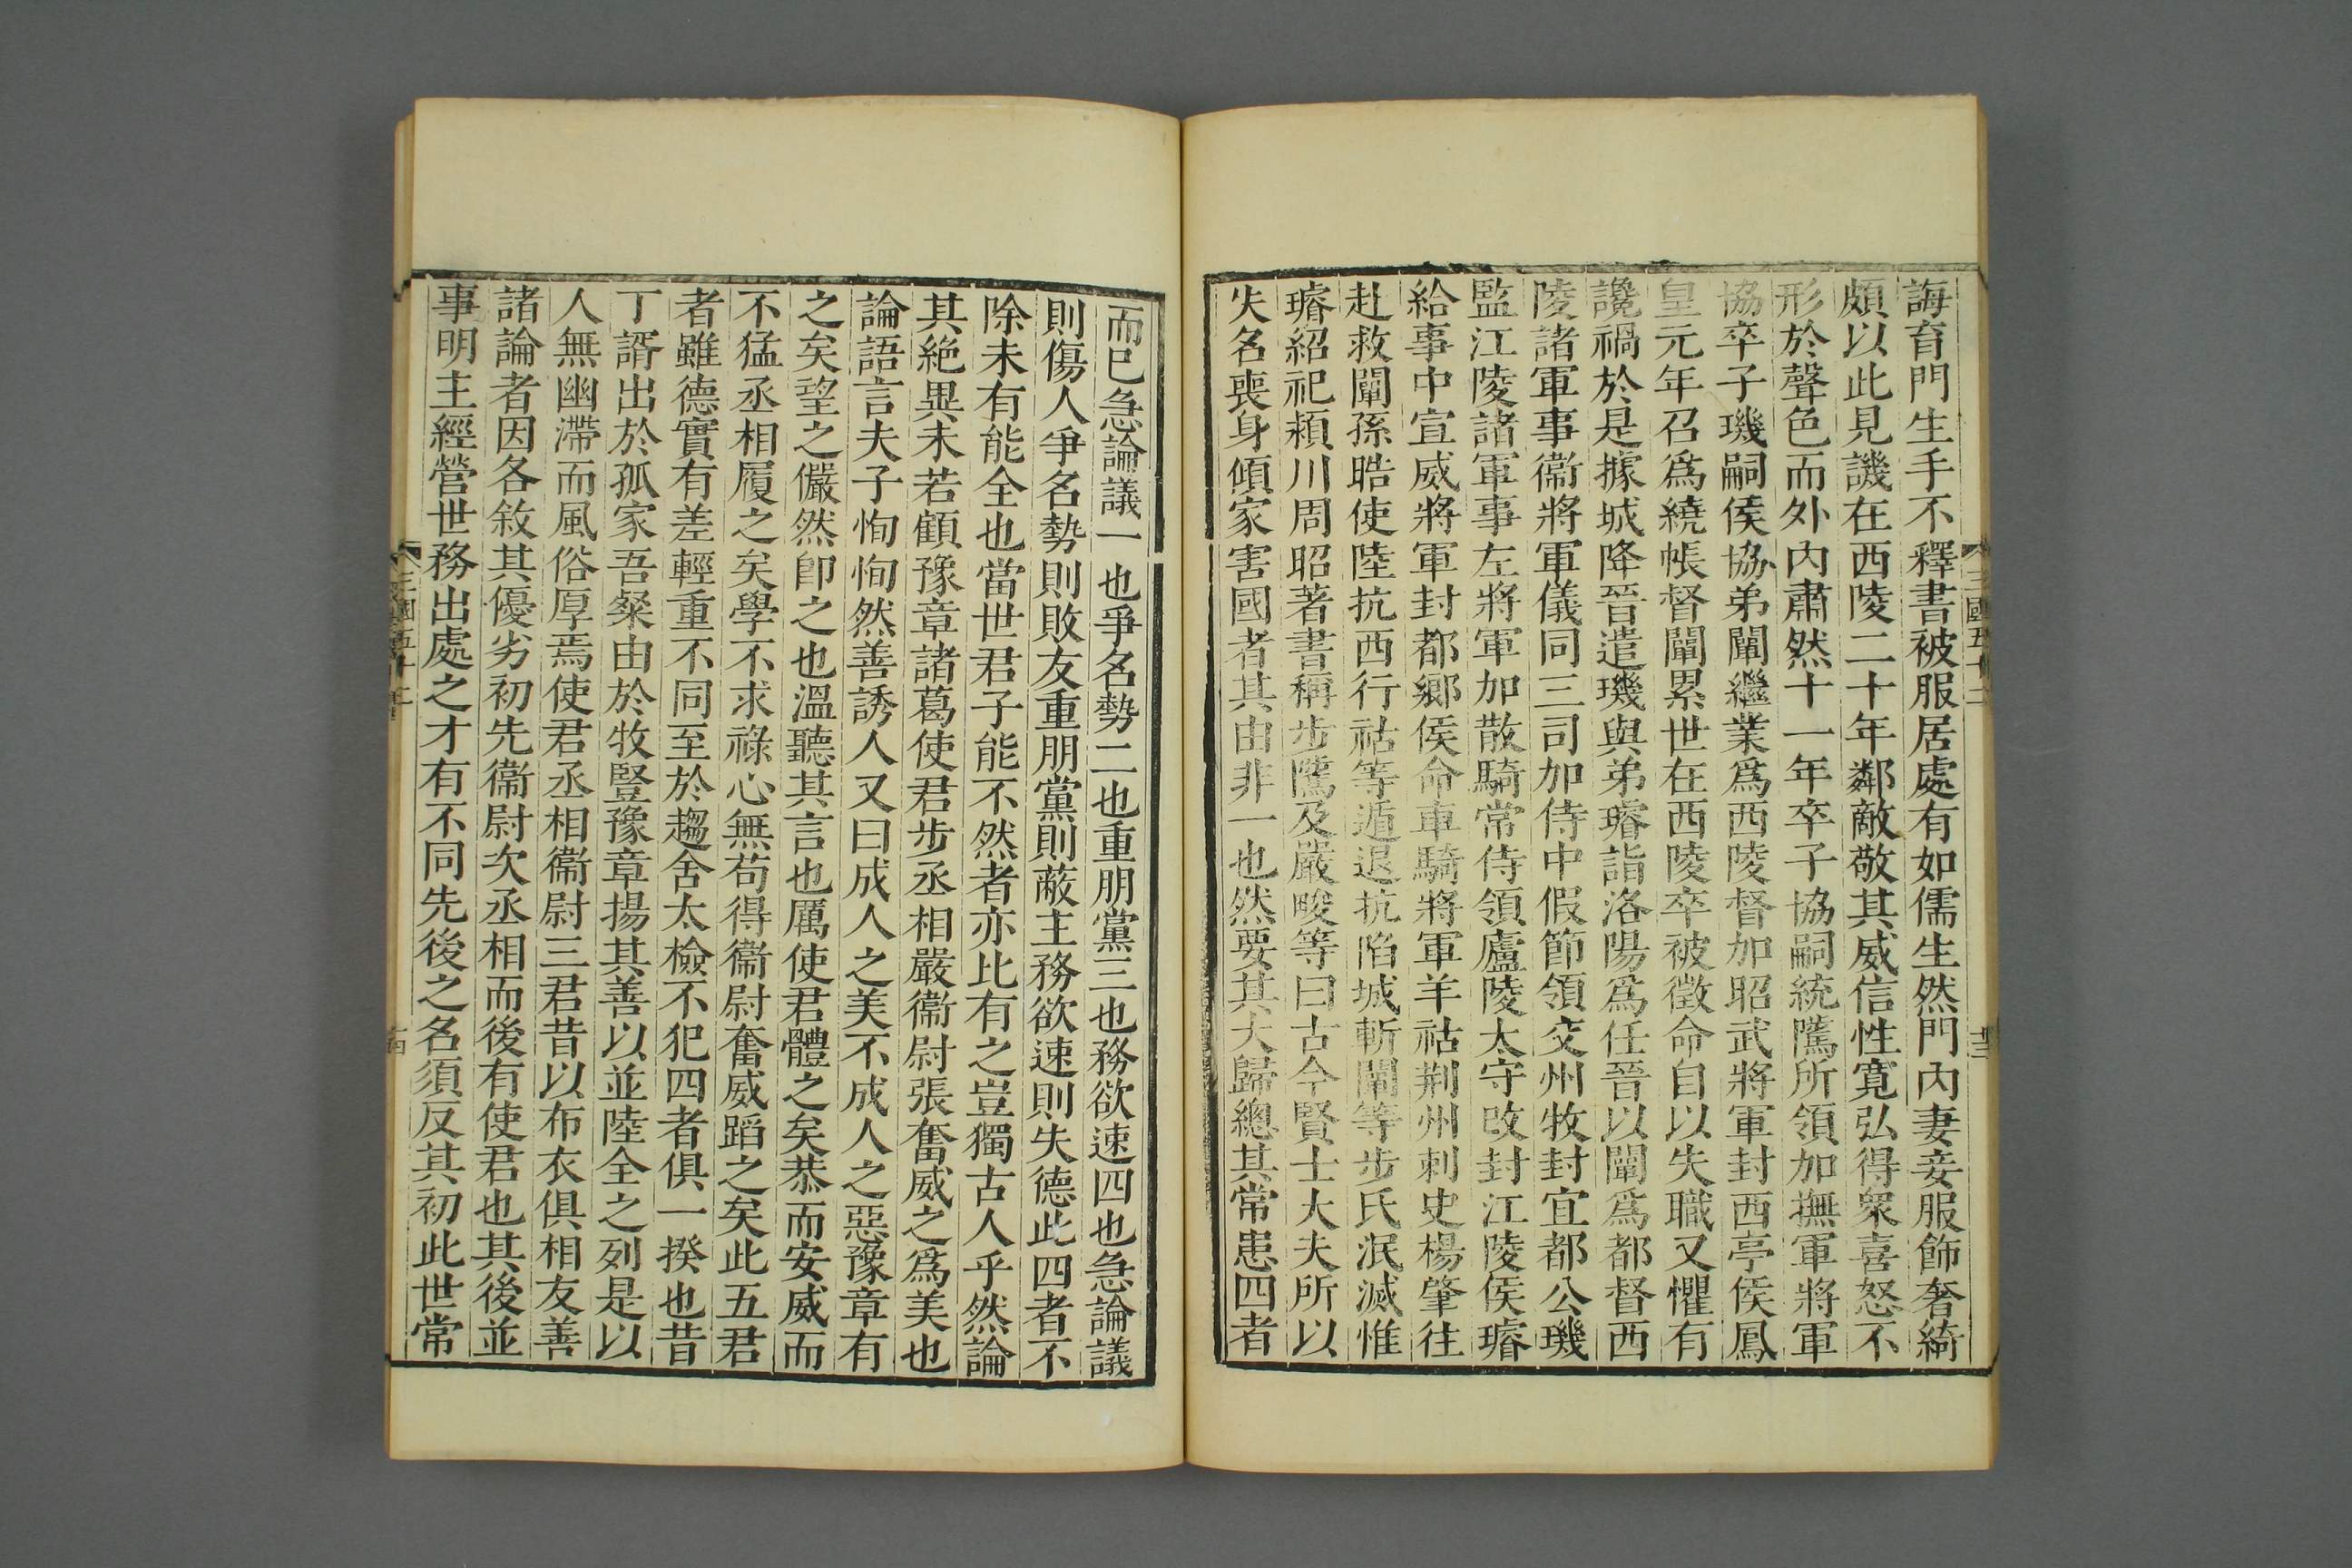 誨育門生手不釋書被服居處有如儒生然門內妻妾服飾奢綺
頗以此見譏在西陵二十年鄰敵敬其威信性寬弘得衆喜怒不
形於聲色而外內肅然十一年卒子協嗣統隲所領加撫軍將軍
協卒子璣嗣侯協弟闡繼業爲西陵督加昭武將軍封西亭侯鳳
皇元年召爲繞帳督闡累世在西陵卒被徵命自以失職又懼有
讒禍於是據城降晉遣璣與弟璿詣洛陽爲任晉以闡爲都督西
陵諸軍事衞將軍儀同三司加侍中假節領交州牧封宜都公璣
監江陵諸軍事左將軍加散騎常侍領廬陵太守改封江陵侯璿
給事中宣威將軍封都鄉侯命車騎將軍羊祜荆州刺史楊肇往
赴救闡孫晧使陸抗西行祜等遁退抗陷城斬闡等步氏泯滅惟
璿紹祀潁川周昭著書稱步隲及嚴畯等曰古今賢士大夫所以
失名喪身傾家害國者其由非一也然要其大歸總其常患四者
三國五十二
十三
而已急論議一也爭名勢二也重朋黨三也務欲速四也急論議
則傷人爭名勢則敗友重朋黨則蔽主務欲速則失德此四者不
除未有能全也當世君子能不然者亦比有之豈獨古人乎然論
其絶異未若顧豫章諸葛使君步丞相嚴衞尉張奮威之爲美也
論語言夫子恂恂然善誘人又曰成人之美不成人之惡豫章有
之矣望之儼然卽之也溫聽其言也厲使君體之矣恭而安威而
不猛丞相履之矣學不求祿心無苟得衞尉奮威蹈之矣此五君
者雖德實有差輕重不同至於趨舍大檢不犯四者俱一揆也昔
丁諝出於孤家吾粲由於牧豎豫章揚其善以並陸全之列是以
人無幽滯而風俗厚焉使君丞相衞尉三君昔以布衣俱相友善
諸論者因各敘其優劣初先衞尉次丞相而後有使君也其後並
事明主經營世務出處之才有不同先後之名須反其初此世常
三國五十二
十四